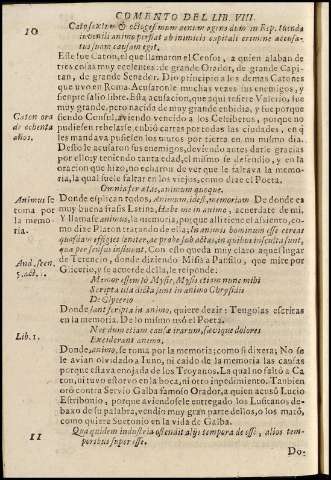 COMENTO DEL LIB. VIII.
10
Cato sextum & octogesimum annum agens dum in Rep. tuenda
iuvenili animo perstat ab inimicis capitali crimine accusa-
tus suam causam egit.
Este fue Caton, el que llamaron el Censor, a quien alaban de
tres cosas muy ecelentes: de grande Orador, de grande Capi-
tan, de grande Senador. Dio principio a los demas Catones
que uvo en Roma. Acusaronle muchas vezes sus enemigos, y
siempre salio libre. Esta acusacion, que aqui refiere Valerio, fue
muy grande, per nacida de muy grande embidia, y fue porque
siendo Consul, aviendo vencido a los Celtiberos, porque no
Caton ora
pudiesen rebelarse, enbiò cartas por todas las ciudades, en q̃
de ochenta
les mandava pusiesen los muros por tierra en un mismo dia.
años.
Desto le acusaron sus enemigos, deviendo antes darle gracias
por ello: y teniendo tanta edad, el mismo se defendio, y en la
oracion que hizo, no echaron de ver que le faltava la memo-
ria, la qual suele faltar en los viejos, como dize el Poeta.
Omnia fert ætas, animum quoque.
Animus se
Donde esplican todos, Animum, idest, memoriam. De donde es
toma por
muy buena frasis Latina, Habe me in animo, acuerdate de mi.
la memo-
Y llamase animus, la memoria, porque alli tiene el asiento, co-
ria.
mo dize Platon tratando de ella; In animis hominum esse cereas
quasdam effigies
quæ per sensus
Con esto queda muy claro aquel lugar
And. scen.
de Terencio, donde diziendo Misis a Panfilo, que mire por
Glicerio, y se acuerde della, le responde:
Memor essem? ò Mysis, Mysis etiam nunc mihi
Scripta illa dicta sunt in animo Chrysidis
De Glycerio
Donde sunt scripta in animo, quiere dezir: Tengolas escritas
en la memoria. De lo mismo usò el Poeta.
Lib. 1.
Nec dum etiam causæ irarum, sævique dolores
Exciderant animo.
Donde, animo, se toma por la memoria; como si dixera; No se
le avian olvidado a Iuno, ni caido de la memoria las causas
porque estava enojada de los Troyanos. La qual no faltò a Ca-
ton, ni tuvo estorvo en la boca, ni otro inpedimento. Tanbien
orò contra Servio Galba famoso Orador, a quien acusò Lucio
Escribonio, porque aviendosele entregado los Lusitanos de-
baxo de su palabra, vendio muy gran parte dellos, o los matò,
como quiere Suetonio en la vida de Galba.
11
Qua quidem industria ostendit alijs tempora deesse, alios tem-
poribus superesse.
Do-